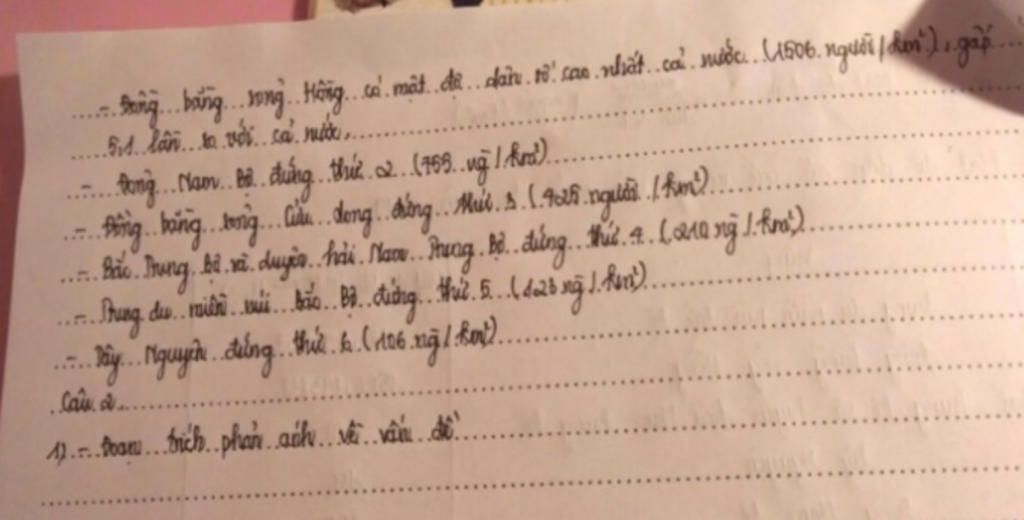 - Đồng bằng sông Hồng có mật độ dân số cao nhất cả nước (1506 người/km²), gấp
5,1 lần so với cả nước.
- Đông Nam Bộ đứng thứ 2 (755 ng/km²)
- Đồng bằng sông Cửu Long đứng thứ 3 (425 người/km²)
- Bắc Trung Bộ và duyên hải Nam Trung Bộ đứng thứ 4 (210 ng/km²)
- Trung du miền núi Bắc Bộ đứng thứ 5 (123 ng/km²)
- Tây Nguyên đứng thứ 6 (106 ng/km²)
Câu 2
1) - Đoạn trích phản ánh về vấn đề